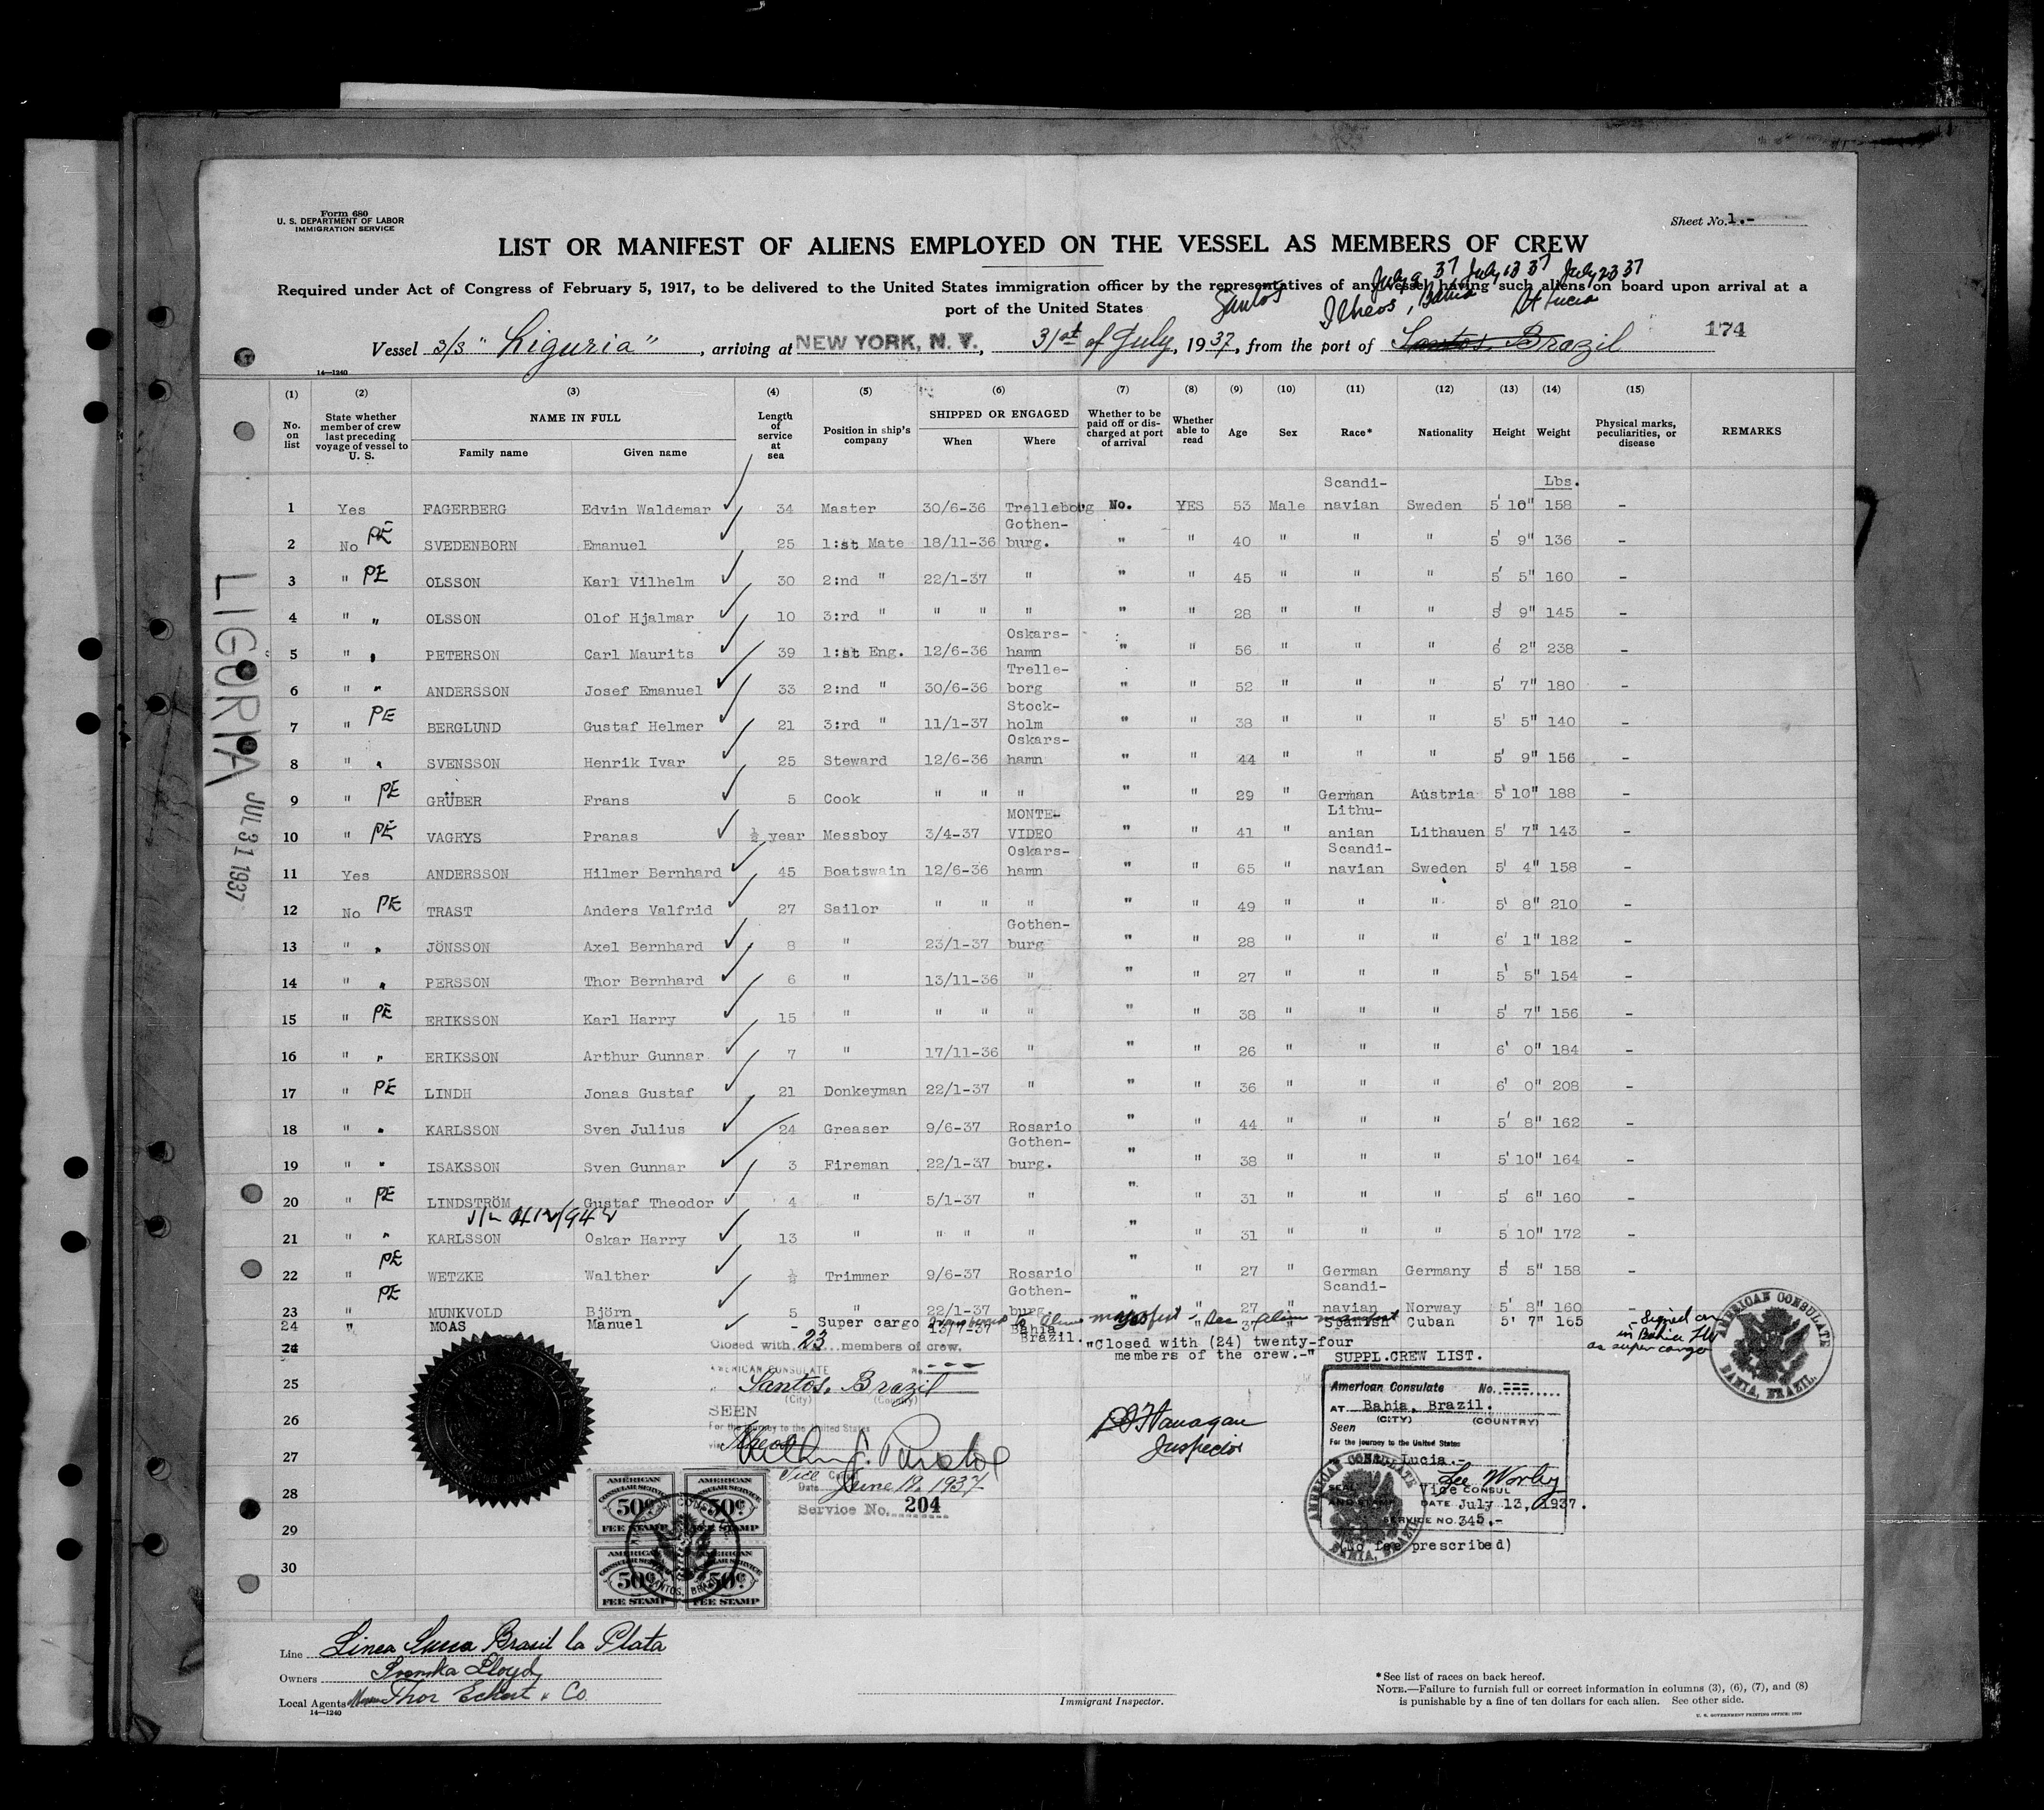 Form 680
U. S. DEPARTMENT OF LABOR
IMMIGRATION SERVICE
Sheet No. 1.-
LIST OR MANIFEST OF ALIENS EMPLOYED ON THE VESSEL AS MEMBERS OF CREW
July 9 37 July 13 37 July 23 37
Required under Act of Congress of February 5, 1917, to be delivered to the United States immigration officer by the representatives of any vessel having such aliens on board upon arrival at a
port of the United States
Santos Ilheos, Bahia St Lucia
Vessel S/S "Liguria", arriving at NEW YORK, N. Y., 31st of July, 1937, from the port of Santos Brazil
174
14—1240
(1) (2) (3) (4) (5) (6) (7) (8) (9) (10) (11) (12) (13) (14) (15)
No. on list State whether member of crew last preceding voyage of vessel to U. S. NAME IN FULL Family name Given name Length of service at sea Position in ship's company SHIPPED OR ENGAGED When Where Whether to be paid off or discharged at port of arrival Whether able to read Age Sex Race* Nationality Height Weight Physical marks, peculiarities, or disease REMARKS
Scandi- Lbs.
1 Yes FAGERBERG Edvin Waldemar 34 Master 30/6-36 Trelleborg No. YES 53 Male navian Sweden 5' 10" 158 -
Gothen-
2 No PE SVEDENBORN Emanuel 25 1:st Mate 18/11-36 burg. " " 40 " " " 5' 9" 136 -
3 " PE OLSSON Karl Vilhelm 30 2:nd " 22/1-37 " " " 45 " " " 5' 5" 160 -
4 " " OLSSON Olof Hjalmar 10 3:rd " " " " " " 28 " " " 5' 9" 145 -
Oskars-
5 " " PETERSON Carl Maurits 39 1:st Eng. 12/6-36 hamn " " 56 " " " 6' 2" 238 -
Trelle-
6 " " ANDERSSON Josef Emanuel 33 2:nd " 30/6-36 borg " " 52 " " " 5' 7" 180 -
Stock-
7 " PE BERGLUND Gustaf Helmer 21 3:rd " 11/1-37 holm " " 38 " " " 5' 5" 140 -
Oskars-
8 " " SVENSSON Henrik Ivar 25 Steward 12/6-36 hamn " " 44 " " " 5' 9" 156 -
9 " PE GRÜBER Frans 5 Cook " " " " " 29 " German Austria 5' 10" 188 -
MONTE- Lithu-
10 " PE VAGRYS Pranas ½ year Messboy 3/4-37 VIDEO " " 41 " anian Lithauen 5' 7" 143 -
Oskars- Scandi-
11 Yes ANDERSSON Hilmer Bernhard 45 Boatswain 12/6-36 hamn " " 65 " navian Sweden 5' 4" 158 -
12 No PE TRAST Anders Valfrid 27 Sailor " " " " " 49 " " " 5' 8" 210 -
Gothen-
13 " " JÖNSSON Axel Bernhard 8 " 23/1-37 burg " " 28 " " " 6' 1" 182 -
14 " " PERSSON Thor Bernhard 6 " 13/11-36 " " " 27 " " " 5' 5" 154 -
15 " PE ERIKSSON Karl Harry 15 " " " " " " 38 " " " 5' 7" 156 -
16 " " ERIKSSON Arthur Gunnar 7 " 17/11-36 " " " 26 " " " 6' 0" 184 -
17 " PE LINDH Jonas Gustaf 21 Donkeyman 22/1-37 " " " 36 " " " 6' 0" 208 -
18 " " KARLSSON Sven Julius 24 Greaser 9/6-37 Rosario " " 44 " " " 5' 8" 162 -
Gothen-
19 " " ISAKSSON Sven Gunnar 3 Fireman 22/1-37 burg. " " 38 " " " 5' 10" 164 -
20 " PE LINDSTRÖM Gustaf Theodor 4 " 5/1-37 " " " 31 " " " 5' 6" 160 -
21 " " KARLSSON Oskar Harry 13 " " " " " " 31 " " " 5 10" 172 -
22 " PE WETZKE Walther ½ Trimmer 9/6-37 Rosario " " 27 " German Germany 5' 5" 158 -
Gothen- Scandi-
23 " PE MUNKVOLD Björn 5 " 22/1-37 burg. " " 27 " navian Norway 5' 8" 160 -
24 " MOAS Manuel - Super cargo 13/7-37 Bahia Brazil. " 37 " Spanish Cuban 5' 7" 165
Signed on in Bahia as super cargo
24
Closed with 23 members of crew.
"Closed with (24) twenty-four
members of the crew.-"
SUPPL.CREW LIST.
25
AMERICAN CONSULATE No. ---
Santos, Brazil
(City) (Country)
26
SEEN
For the journey to the United States
27
Vice Consul
28
Date June 19, 1937
Service No. 204
29
30
Inspector
American Consulate No. ===
AT Bahia, Brazil.
(CITY) (COUNTRY)
Seen
For the journey to the United States
Lucia.-
Lee Worley
Vice CONSUL
DATE July 13, 1937.
SERVICE NO. 345.-
(No fee prescribed)
AMERICAN CONSULATE
BAHIA, BRAZIL.
AMERICAN CONSULATE
BAHIA, BRAZIL.
AMERICAN CONSULAR SERVICE 50¢ FEE STAMP
AMERICAN CONSULAR SERVICE 50¢ FEE STAMP
AMERICAN CONSULAR SERVICE 50¢ FEE STAMP
AMERICAN CONSULAR SERVICE 50¢ FEE STAMP
SANTOS, BRAZIL
LIGURIA
JUL 31 1937
Line Linea Sueca Brasil la Plata
Owners Svenska Lloyd
Local Agents Messrs Thor Eckert & Co.
14—1240
Immigrant Inspector.
*See list of races on back hereof.
NOTE.—Failure to furnish full or correct information in columns (3), (6), (7), and (8)
is punishable by a fine of ten dollars for each alien. See other side.
U. S. GOVERNMENT PRINTING OFFICE